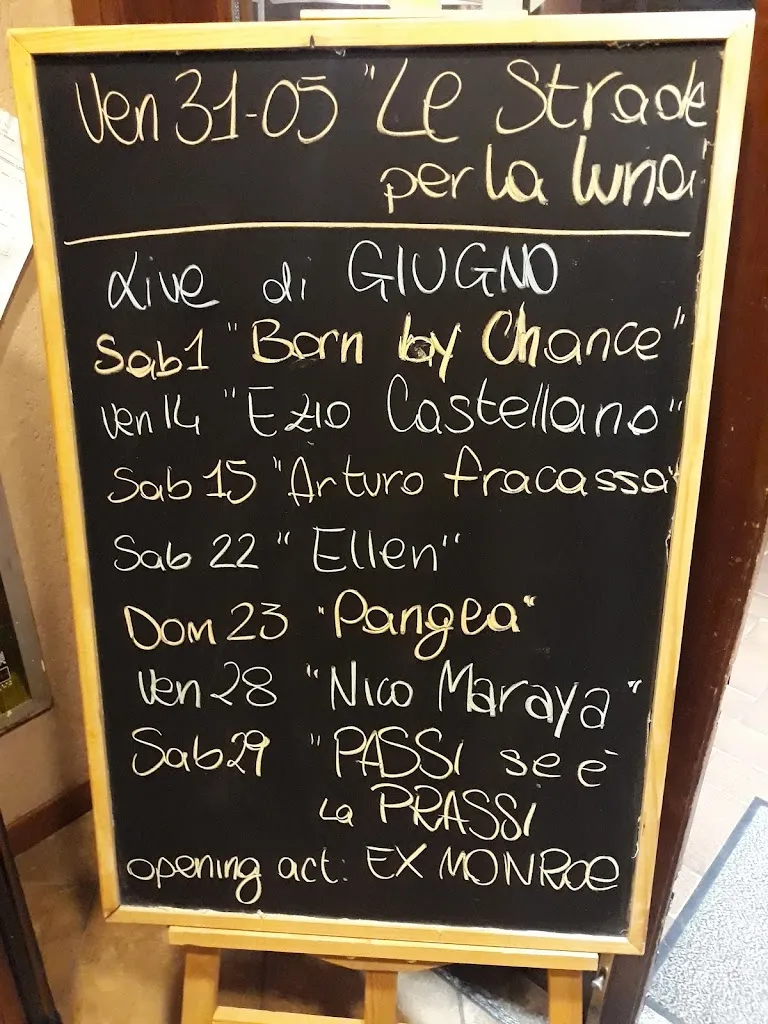 Ven 31-05 "Le Strade
per la luna
Live di GIUGNO
Sab 1 "Born by Chance"
Ven 14 "Ezio Castellano"
Sab 15 "Arturo fracassa"
Sab 22 "Ellen"
Dom 23 "Pangea"
Ven 28 "Nico Maraya"
Sab 29 "PASSI se è
la PRASSI
opening act: EX MONROE